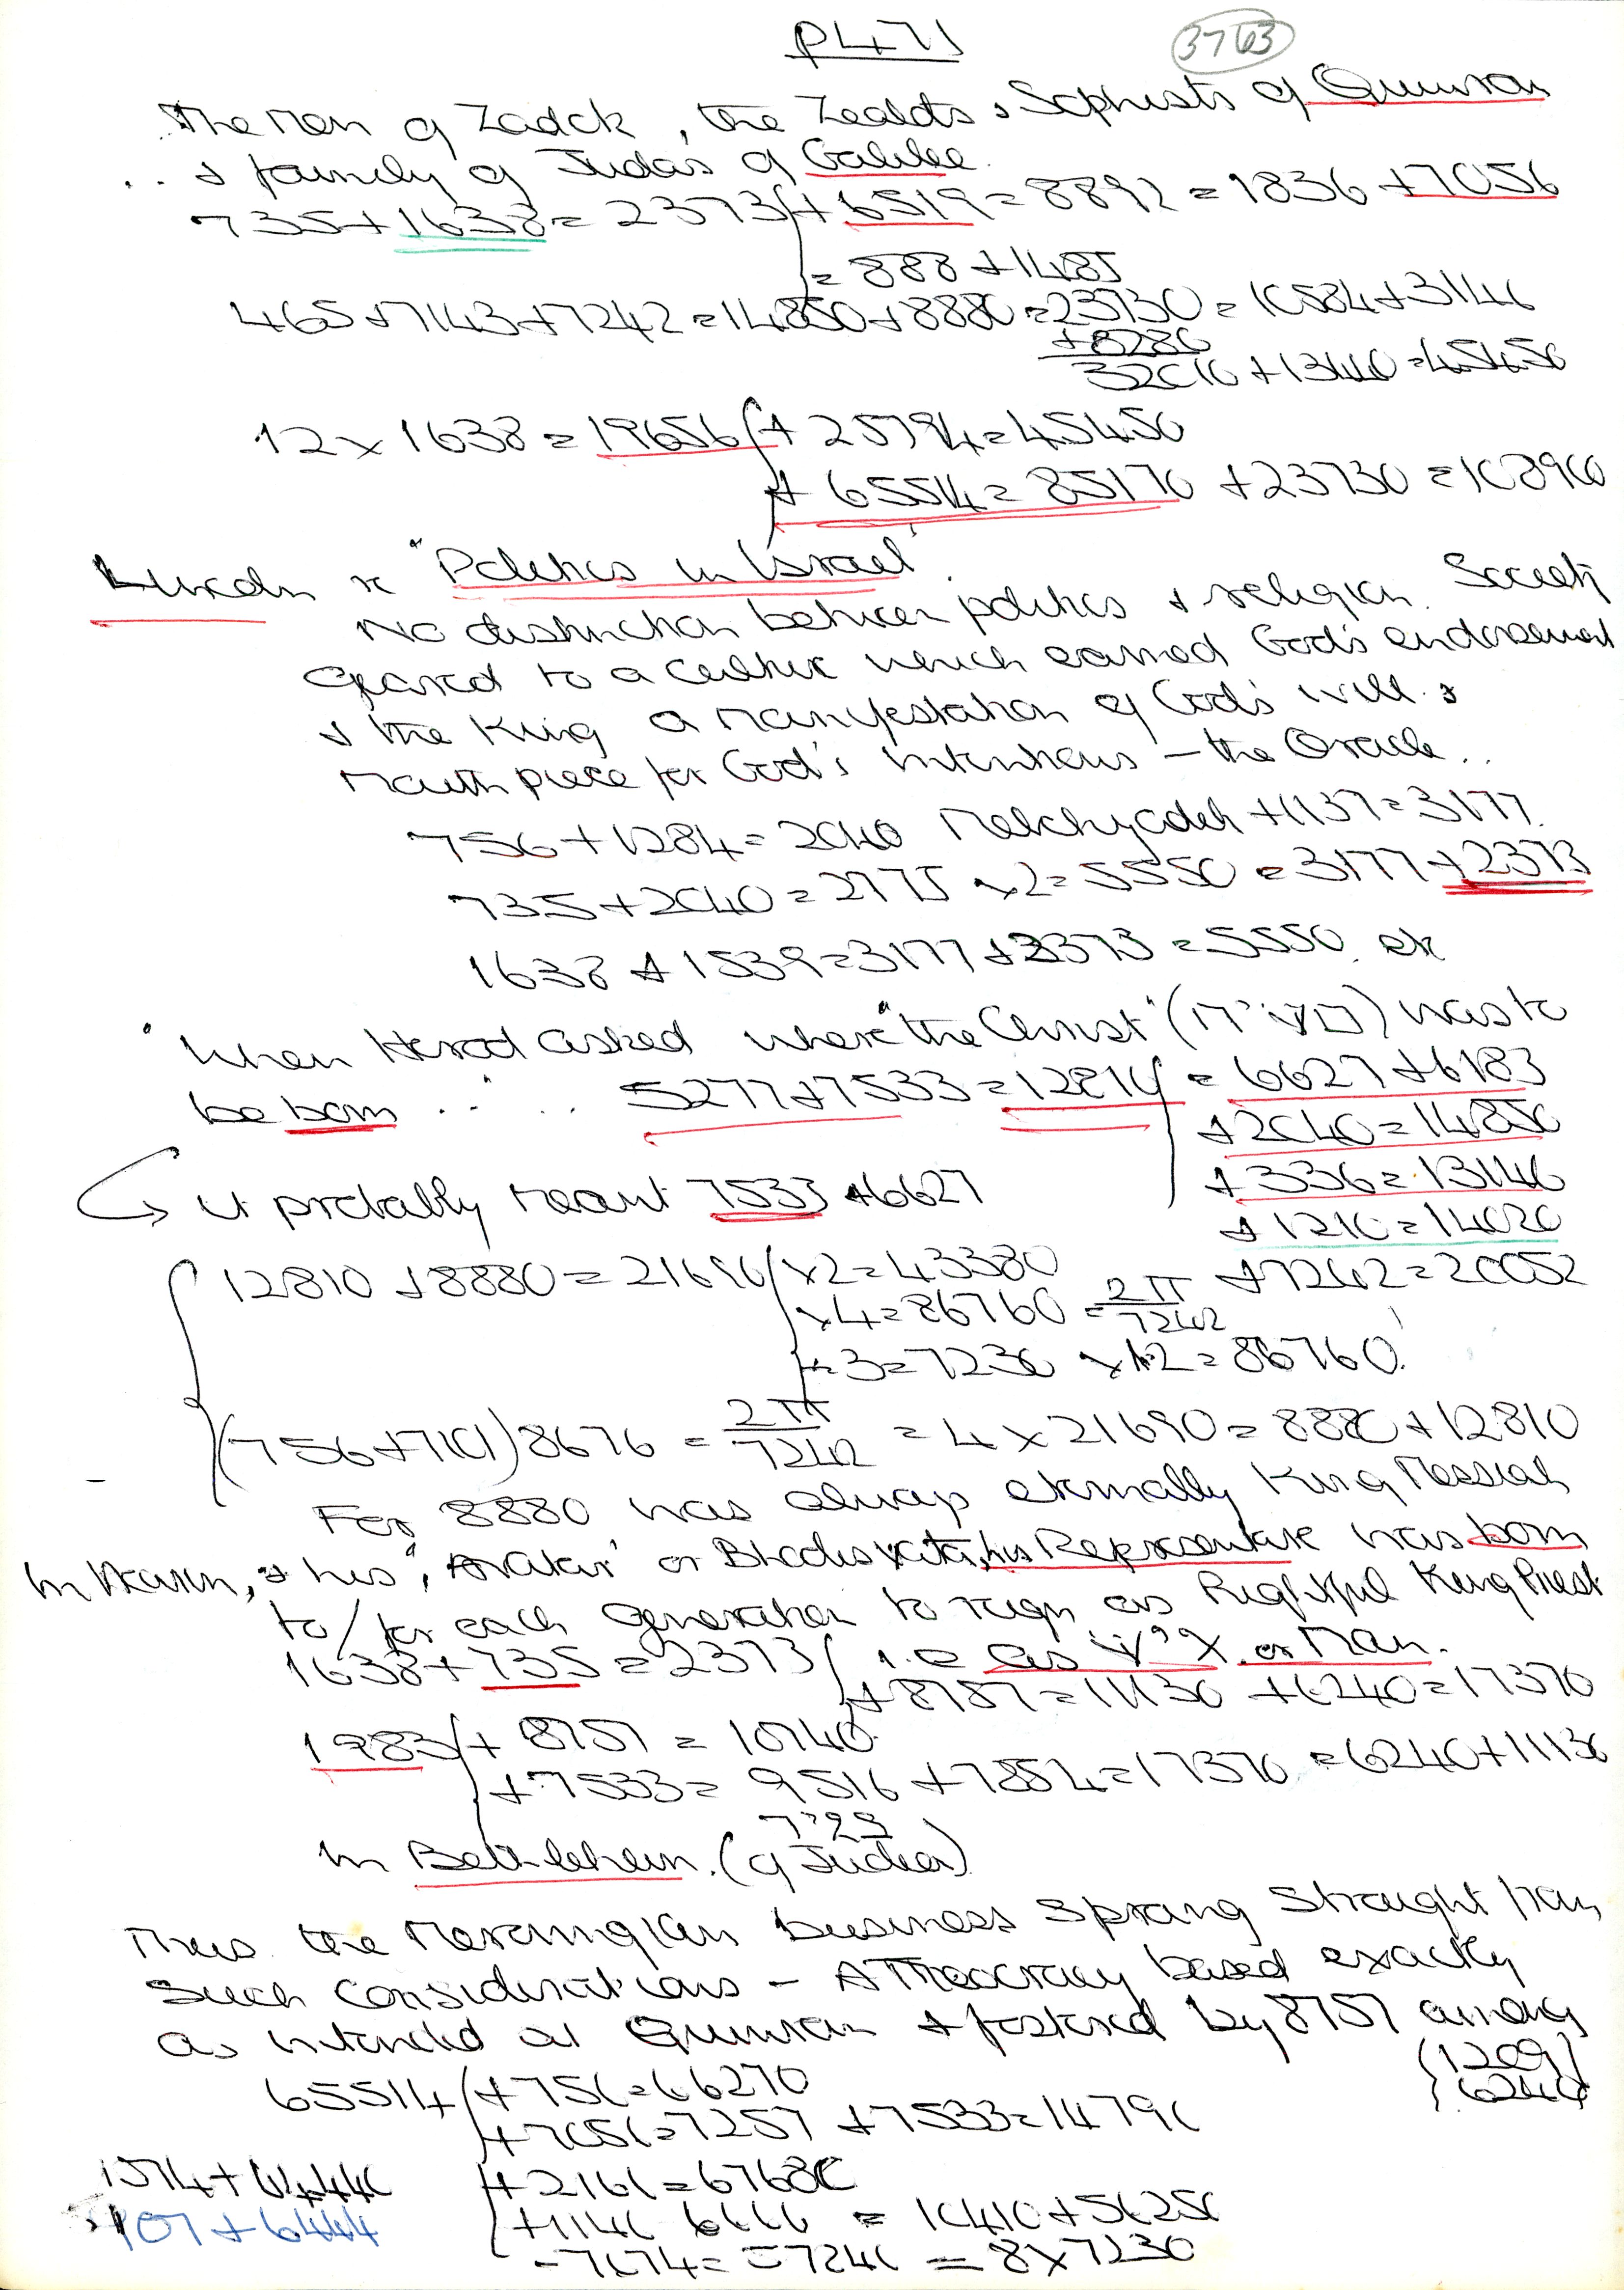 P471
3763
The Men of Zadok, the Zealots, Sophists of Qumran
.. & family of Judas of Galilee.
735+1638=2373 +6519=8892=1836+7056
= 888+1485
465+7143+7242=14850+8880=23730=10584+3146
+8286
32016+13440=45450
12×1638=19656 +25794=45450
+65514=85170+23730=108900
"Politics in Israel"
No distinction between politics & religion. Society
geared to a culture which earned God's endorsement
& the King a manifestation of God's will &
mouth piece for God's intentions – the Oracle..
756+1284=2040 +1137=3177
735+2040=2775 ×2=5550=3177+2373
1638+1539=3177+2373=5550
"When Herod asked where "the Christ" (משיח) was to
be born ..... 5277+7533=12810=6627+6183
+2040=14850
+336=13146
+1210=14020
+7242=20052
it probably meant 7533+6627
12810+8880=21690 ×2=43380
×4=86760=2π/7242
÷3=7230×12=86760
(756+7101)8676=2π/7242=4×21690=8880+12810
For 8880 was always eternally King Messiah
in Heaven, & his "Avatar" or his Representative was born
to/for each generation to reign as Rightful King Priest
1638+735=2373 i.e. as איש or Man.
+8757=11130+6240=17370
1983+8757=10740
+7533=9516+7854=17370=6240+11130
in Bethlehem. (of Judea)
Thus the Merovingian business sprang straight from
such considerations – A Theocracy based exactly
as intended at Qumran & fostered by 8757 among
(1209)
6240
65514+756=66270
+7533=14790
+2166=67680
=10410+56250
=8×7230
107+6444